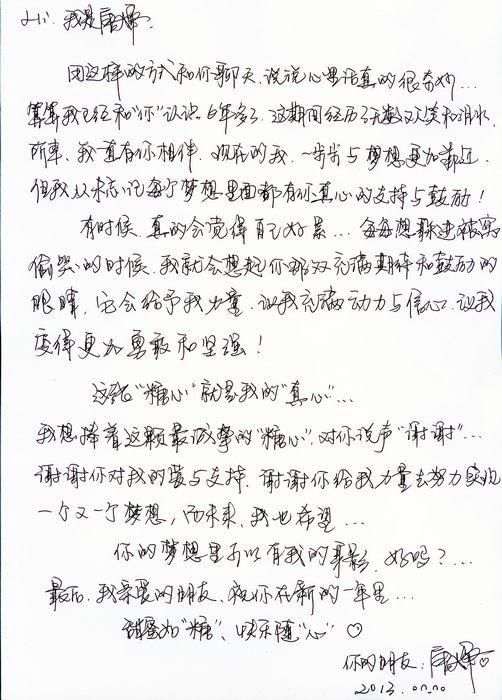 Hi. 我是唐嫣.
用这样的方式和你聊天、说说心里话真的很奇妙...
算算我已经和“你”认识6年多了. 这期间经历了无数次欢笑和泪水,
所幸, 我一直有你相伴. 现在的我, 一步步与梦想更加靠近.
但我从未忘记每个梦想里面都有你真心的支持与鼓励!
有时候, 真的会觉得自己好累... 每每想躲进被窝
偷哭的时候, 我就会想起你那双充满期待和鼓励的
眼睛, 它会给予我力量. 让我充满动力与信心. 让我
变得更加勇敢和坚强!
这张“糖心”就是我的“真心”...
我想捧着这颗最诚挚的“糖心”, 对你说声“谢谢”...
谢谢你对我的爱与支持, 谢谢你给我力量去努力实现
一个又一个梦想, 而未来, 我也希望...
你的梦想里可以有我的身影, 好吗?...
最后. 我亲爱的朋友, 祝你在新的一年里...
甜蜜如“糖”、快乐随“心”♡
你的朋友: 唐嫣♡
2013.